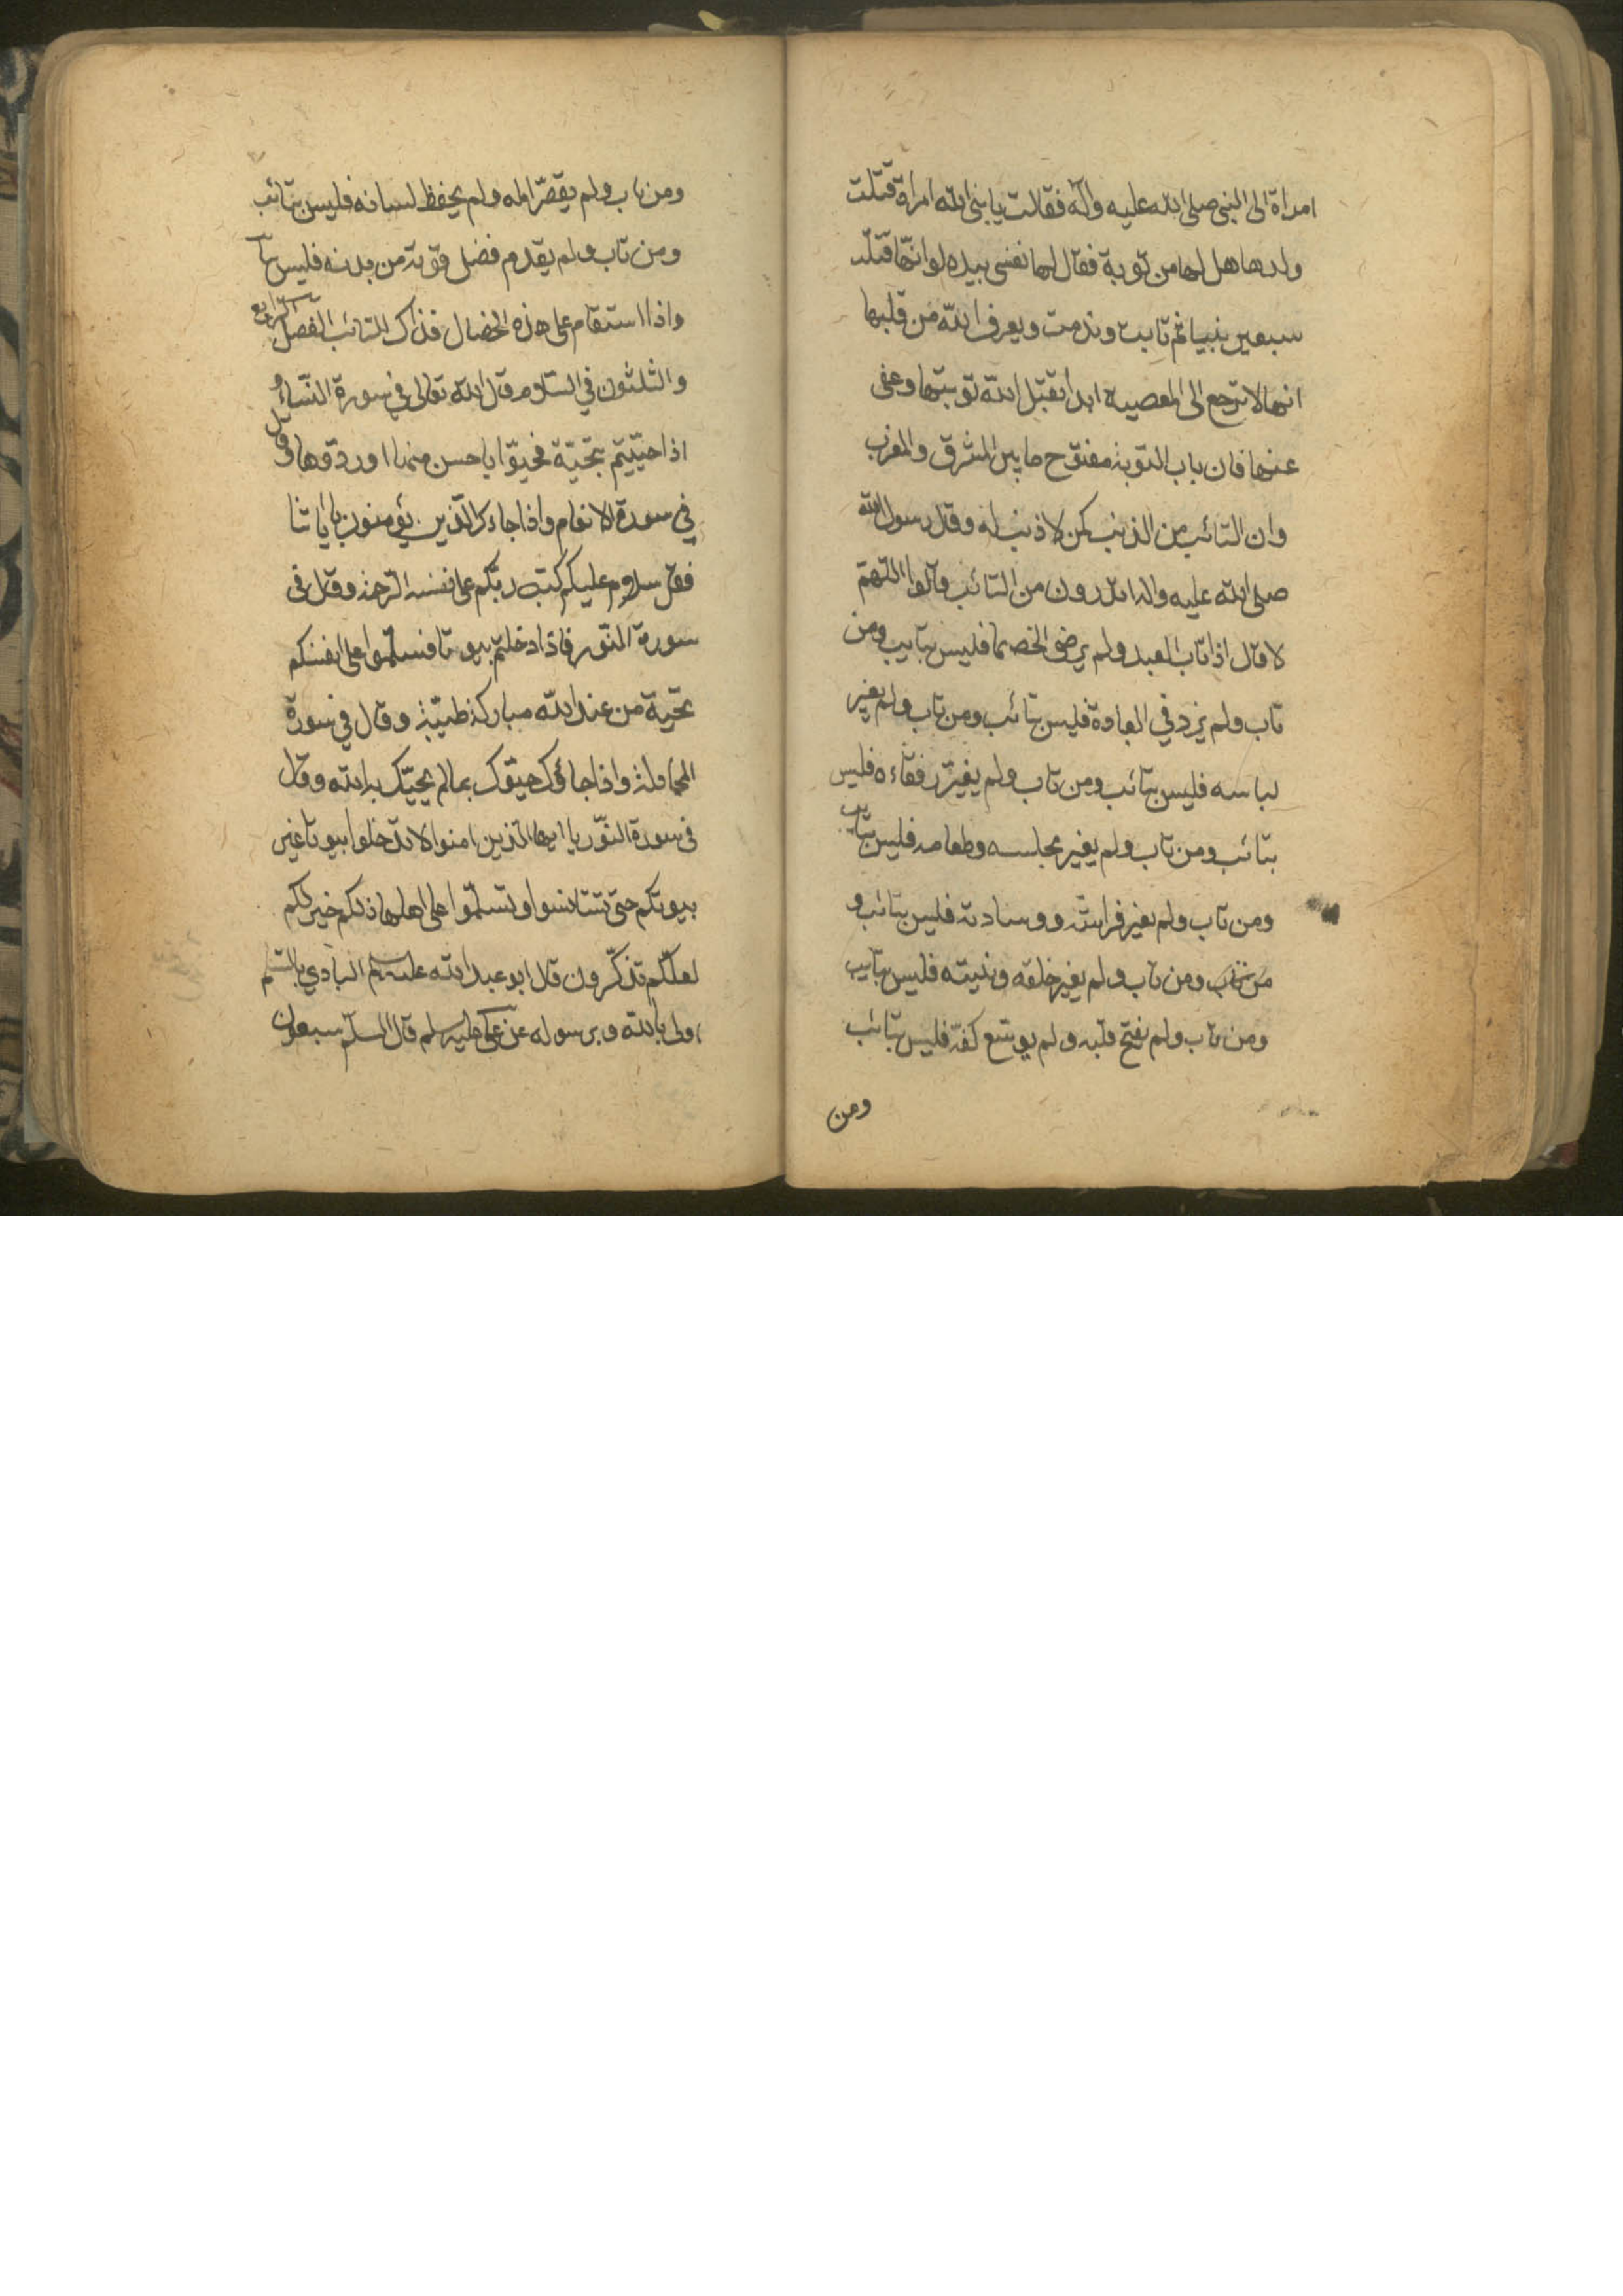 امراة الى النبى صلى الله عليه وآله فقالت يا نبى الله امراة قتلت
ولدها هل لها من توبة فقال لها نفسى بيده لو انها قتلت
سبعين نبيا ثم تابت وندمت ويعرف الله من قلبها
انها لا ترجع الى المعصية ابدا تقبّل الله توبتها وعفى
عنها فان باب التوبة مفتوح ما بين المشرق والمغرب
وان التائب من الذنب كمن لا ذنب له وقال رسول الله
صلى الله عليه واله اتدرون من التائب قالوا اللهم
لا قال اذا تاب العبد ولم يرضى الخصما فليس بتايب ومن
تاب ولم يزد في العبادة فليس بتائب ومن تاب ولم يغير
لباسه فليس بتائب ومن تاب ولم يغيّر رفقاءه فليس
بتائب ومن تاب ولم يغير مجلسه وطعامه فليس بتائب
ومن تاب ولم يغير فراشه ووسادته فليس بتائب و
من تاب ومن تاب ولم يغير خلقه ونيته فليس بتايب
ومن تاب ولم يفتح قلبه ولم يوسّع كفّه فليس بتائب
ومن
ومن تاب ولم يقصّر امله ولم يحفظ لسانه فليس بتائب
ومن تاب ولم يقدم فضل قوته من بدنه فليس بتا
واذا استقام على هذه الخصال فذاك التائب الفصل الرابع
والثلثون في السلام قال الله تعالى في سورة النّساء و
اذا حيّيتم بتحيّة فحيّوا باحسن منها او ردّوها وقال
في سورة الانعام واذا جاءك الّذين يؤمنون باياتنا
فقل سلام عليكم كتب ربّكم على نفسه الرّحمة وقال فى
سورة النّور فاذا دخلتم بيوتا فسلّموا على انفسكم
تحية من عند الله مباركة طيّبة وقال في سورة
المجادلة واذا جاؤك حيّوك بما لم يحيّك به الله وقال
فى سورة النّور يا ايها الّذين امنوا لا تدخلوا بيوتا غير
بيوتكم حتى تستانسوا وتسلّموا على اهلها ذلكم خير لكم
لعلّكم تذكّرون قال ابو عبد الله عليه سلم البادي بالسّلم
اولى بالله وبرسوله عن على عليه سلم قال السلم سبعون